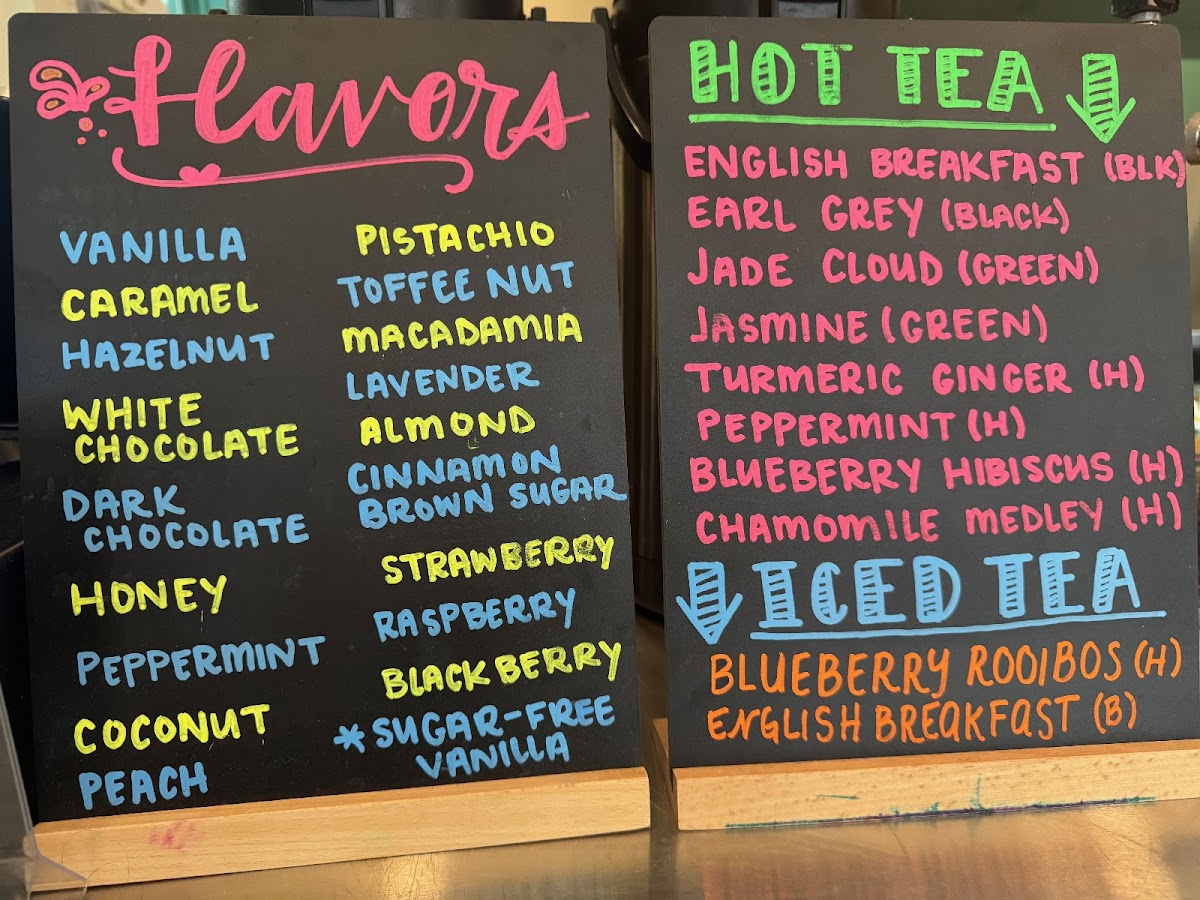 Flavors
VANILLA
CARAMEL
HAZELNUT
WHITE
CHOCOLATE
DARK
CHOCOLATE
HONEY
PEPPERMINT
COCONUT
PEACH
PISTACHIO
TOFFEE NUT
MACADAMIA
LAVENDER
ALMOND
CINNAMON
BROWN SUGAR
STRAWBERRY
RASPBERRY
BLACKBERRY
*SUGAR-FREE
VANILLA
HOT TEA
ENGLISH BREAKFAST (BLK)
EARL GREY (BLACK)
JADE CLOUD (GREEN)
JASMINE (GREEN)
TURMERIC GINGER (H)
PEPPERMINT (H)
BLUEBERRY HIBISCUS (H)
CHAMOMILE MEDLEY (H)
ICED TEA
BLUEBERRY ROOIBOS (H)
ENGLISH BREAKFAST (B)